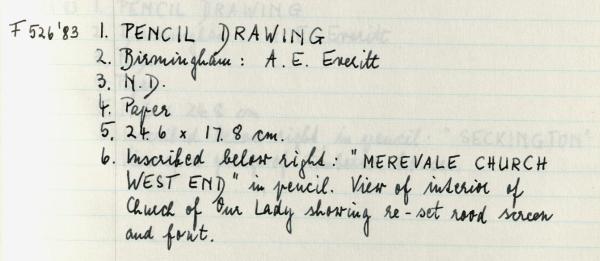 F 526'83 1. PENCIL DRAWING
2. Birmingham: A. E. Everitt
3. N.D.
4. Paper
5. 24.6 x 17.8 cm.
6. Inscribed below right: "MEREVALE CHURCH
WEST END" in pencil. View of interior of
Church of Our Lady showing re-set rood screen
and font.